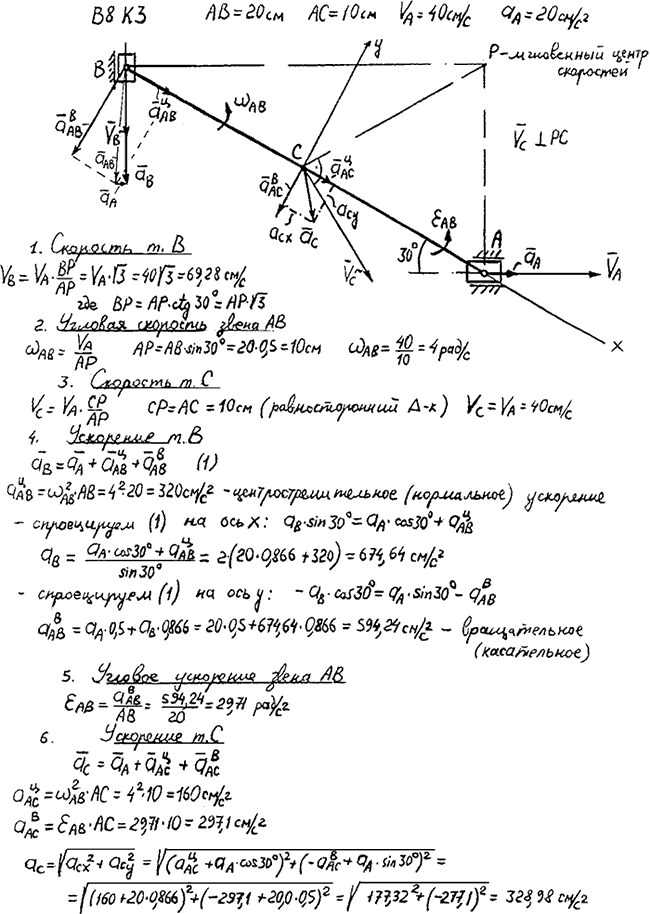 В8 К3 AB=20см AC=10см V̄A=40см/с aA=20см/с²
y
P-мгновенный центр
скоростей
B
āᴮAB
V̄B
āAB
āB
āA
āᶣAB
ωAB
V̄C ⊥ PC
C
āᶣAC
āᴮAC
aCY
aCX
āC
V̄C
εAB
30°
A
āA
V̄A
x
1. Скорость т. В
VB = VA·BP/AP = VA·√3 = 40√3 = 69,28 см/с
где BP = AP·ctg 30° = AP·√3
2. Угловая скорость звена АВ
ωAB = VA/AP AP = AB·sin30° = 20·0,5 = 10см ωAB = 40/10 = 4 рад/с
3. Скорость т. С
VC = VA·CP/AP CP = AC = 10см (равносторонний Δ-к) VC = VA = 40см/с
4. Ускорение т. В
āB = āA + āᶣAB + āᴮAB (1)
aᶣAB = ω²AB·AB = 4²·20 = 320см/с² - центростремительное (нормальное) ускорение
- спроецируем (1) на ось x: aB·sin30° = aA·cos30° + aᶣAB
aB = (aA·cos30° + aᶣAB)/sin30° = 2·(20·0,866 + 320) = 674,64 см/с²
- спроецируем (1) на ось y: -aB·cos30° = aA·sin30° - aᴮAB
aᴮAB = aA·0,5 + aB·0,866 = 20·0,5 + 674,64·0,866 = 594,24см/с² - вращательное
(касательное)
5. Угловое ускорение звена АВ
εAB = aᴮAB/AB = 594,24/20 = 29,71 рад/с²
6. Ускорение т. С
āC = āA + āᶣAC + āᴮAC
aᶣAC = ω²AB·AC = 4²·10 = 160см/с²
aᴮAC = εAB·AC = 29,71·10 = 297,1 см/с²
aC = √(aCX² + aCY²) = √((aᶣAC + aA·cos30°)² + (-aᴮAC + aA·sin30°)²) =
= √((160+20·0,866)² + (-297,1 + 20,0·0,5)²) = √(177,32² + (-277,1)²) = 328,98 см/с²